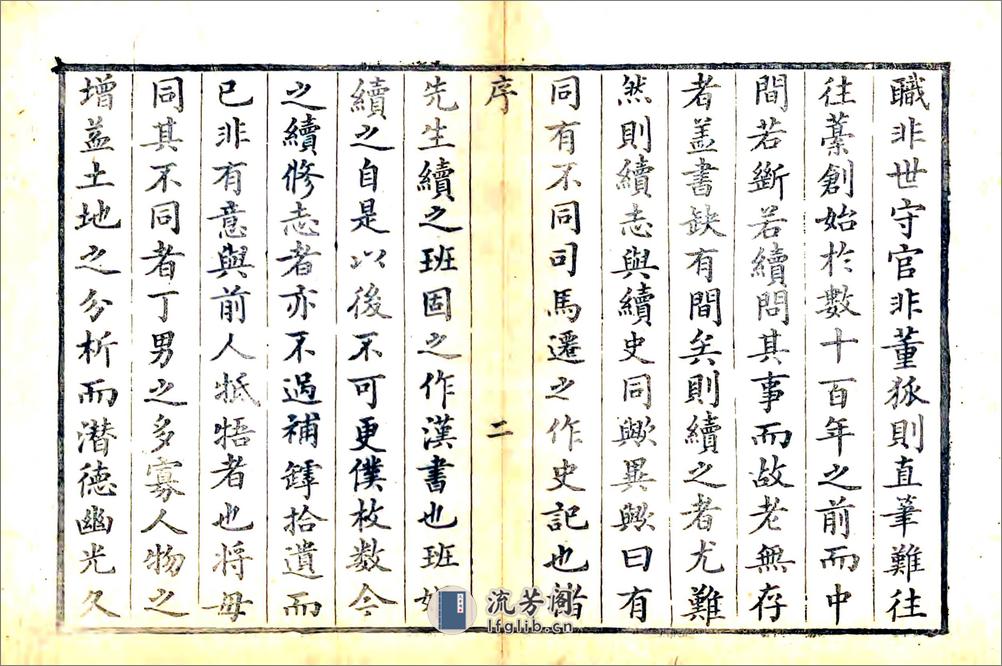 職非世守官非董狐則直筆難往
往藁創始於數十百年之前而中
間若斷若續問其事而故老無存
者盖書缺有間矣則續之者尤難
然則續志與續史同歟異歟曰有
同有不同司馬遷之作史記也褚
序
二
先生續之班固之作漢書也班
續之自是以後不可更僕枚數今
之續修志者亦不過補罅拾遺而
已非有意與前人牴牾者也將毋
同其不同者丁男之多寡人物之
增益土地之分析而潜德幽光久
流芳阁
lfglib.cn